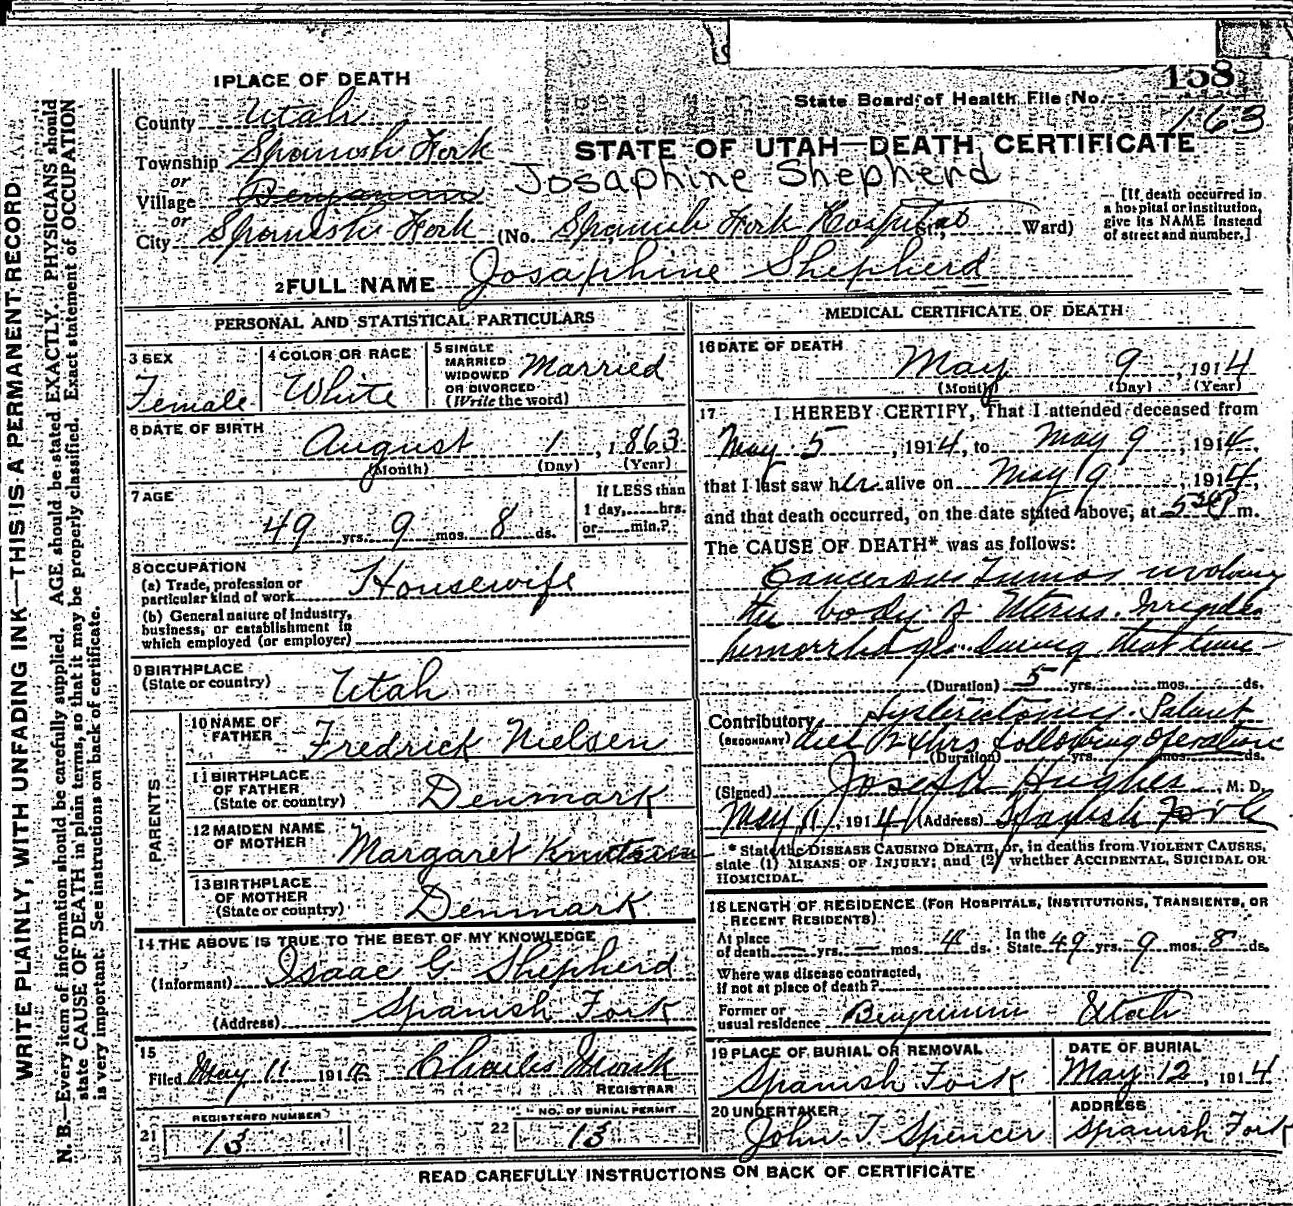 158
State Board of Health File No. 163
1 PLACE OF DEATH
County Utah
Township Spanish Fork
or
Village Benjamin
or
City Spanish Fork (No. Spanish Fork Hospital St., Ward)
STATE OF UTAH—DEATH CERTIFICATE
Josaphine Shepherd
[If death occurred in
a hospital or institution,
give its NAME instead
of street and number.]
2 FULL NAME Josaphine Shepherd
PERSONAL AND STATISTICAL PARTICULARS
3 SEX
Female
4 COLOR OR RACE
White
5 SINGLE
MARRIED
WIDOWED
OR DIVORCED
(Write the word)
Married
6 DATE OF BIRTH
August 1, 1863
(Month) (Day) (Year)
7 AGE
49 yrs. 9 mos. 8 ds.
If LESS than
1 day, hrs.
or min.?
8 OCCUPATION
(a) Trade, profession or
particular kind of work Housewife
(b) General nature of industry,
business, or establishment in
which employed (or employer)
9 BIRTHPLACE
(State or country) Utah
PARENTS
10 NAME OF
FATHER Fredrick Nielsen
11 BIRTHPLACE
OF FATHER
(State or country) Denmark
12 MAIDEN NAME
OF MOTHER Margaret
13 BIRTHPLACE
OF MOTHER
(State or country) Denmark
14 THE ABOVE IS TRUE TO THE BEST OF MY KNOWLEDGE
(Informant) Isaac G Shepherd
(Address) Spanish Fork
15
Filed May 11 1914 Charles Monk
REGISTRAR
21 REGISTERED NUMBER
13
22 NO. OF BURIAL PERMIT
13
MEDICAL CERTIFICATE OF DEATH
16 DATE OF DEATH
May 9, 1914
(Month) (Day) (Year)
17 I HEREBY CERTIFY, That I attended deceased from
May 5, 1914, to May 9, 1914,
that I last saw her alive on May 9, 1914,
and that death occurred, on the date stated above, at 5 30 P m.
The CAUSE OF DEATH* was as follows:
Cancerous Tumor involving
the body of Uterus. Irregular
hemorrhages during that time
(Duration) 5 yrs. mos. ds.
Contributory Hysterectomy. Patient
(SECONDARY) died 24 hrs following operation
(Duration) yrs. mos. ds.
(Signed) Joseph Hughes, M. D.
May 11, 1914 (Address) Spanish Fork
* State the DISEASE CAUSING DEATH, or, in deaths from VIOLENT CAUSES,
state (1) MEANS OF INJURY; and (2) whether ACCIDENTAL, SUICIDAL OR
HOMICIDAL.
18 LENGTH OF RESIDENCE (FOR HOSPITALS, INSTITUTIONS, TRANSIENTS, OR
RECENT RESIDENTS)
At place
of death — yrs. — mos. 4 ds. In the
State 49 yrs. 9 mos. 8 ds.
Where was disease contracted,
if not at place of death?
Former or
usual residence Benjamin Utah
19 PLACE OF BURIAL OR REMOVAL
Spanish Fork
DATE OF BURIAL
May 12, 1914
20 UNDERTAKER
John T Spencer
ADDRESS
Spanish Fork
READ CAREFULLY INSTRUCTIONS ON BACK OF CERTIFICATE
WRITE PLAINLY, WITH UNFADING INK—THIS IS A PERMANENT RECORD
N. B.—Every item of information should be carefully supplied. AGE should be stated EXACTLY. PHYSICIANS should
state CAUSE OF DEATH in plain terms, so that it may be properly classified. Exact statement of OCCUPATION
is very important. See instructions on back of certificate.